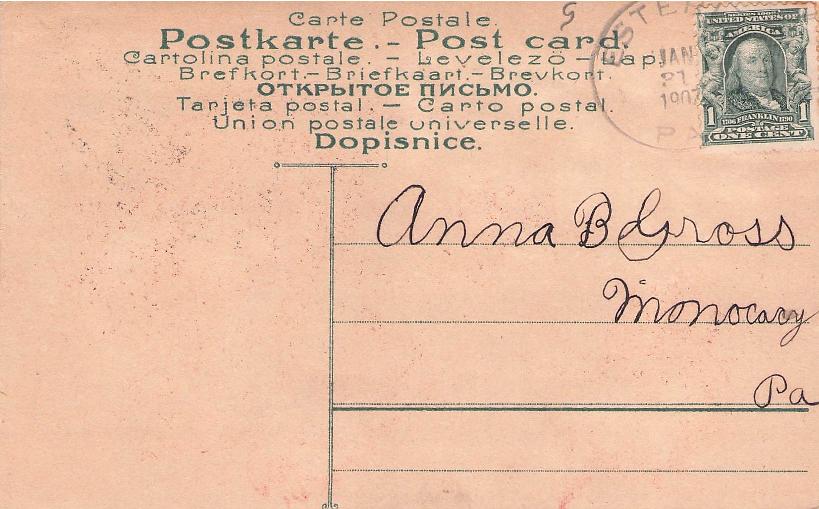 Carte Postale.
Postkarte. - Post card.
Cartolina postale. - Levelezö - Lap.
Brefkort. - Briefkaart. - Brevkort.
ОТКРЫТОЕ ПИСЬМО.
Tarjeta postal. - Carto postal.
Union postale universelle.
Dopisnice.
5
JAN
21
1907
PA
SERIES 1902
UNITED STATES OF
AMERICA
1 1706 FRANKLIN 1790 1
POSTAGE
ONE CENT
Anna B Gross
Monocacy
Pa